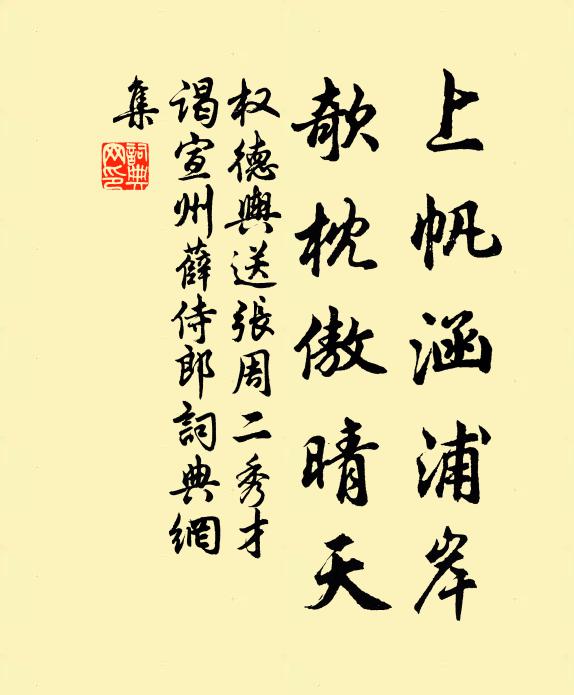 上帆涵浦岸
欹枕傲晴天
权德舆送张周二秀才
谒宣州薛侍郎詞典網
集
詞典网印